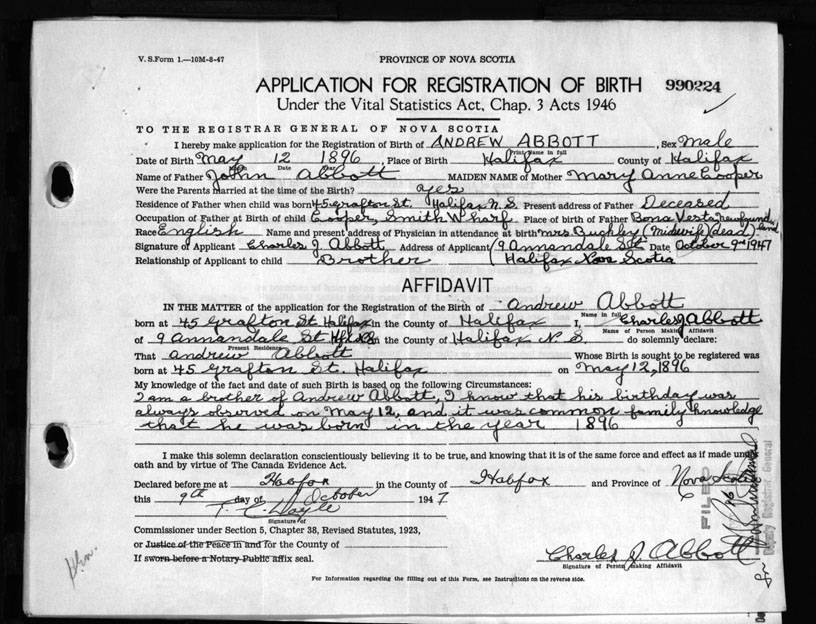 V. S. Form 1.—10M-8-47
PROVINCE OF NOVA SCOTIA
APPLICATION FOR REGISTRATION OF BIRTH 990224
Under the Vital Statistics Act, Chap. 3 Acts 1946
TO THE REGISTRAR GENERAL OF NOVA SCOTIA
I hereby make application for the Registration of Birth of ANDREW ABBOTT, Sex Male
Print Name in full
Date of Birth May 12 1896, Place of Birth Halifax County of Halifax
Date Year
Name of Father John Abbott MAIDEN NAME of Mother Mary Anne Cooper
Were the Parents Married at the time of Birth? yes
Residence of Father when child was born 45 Grafton St. Halifax N. S. Present address of Father Deceased
Occupation of Father at Birth of child Cooper, Smith Wharf Place of birth of Father Bona Vesta Newfoundland
Race English Name and present address of Physician in attendance at birth Mrs Bughley (Midwife) (dead)
Signature of Applicant Charles J. Abbott Address of Applicant (9 Annandale St Date October 9th 1947
Relationship of Applicant to child Brother (Halifax Nova Scotia
AFFIDAVIT
IN THE MATTER of the application for the Registration of Birth of Andrew Abbott
Name in full
born at 45 Grafton St Halifax in the County of Halifax I, Charles J Abbott
Name of Person Making Affidavit
of 9 Annandale St in the County of Halifax N. S. do solemnly declare:
Present Residence
That Andrew Abbott Whose Birth is sought to be registered was
born at 45 Grafton St. Halifax on May 12, 1896
My knowledge of the fact and date of such Birth is based on the following Circumstances:
I am a brother of Andrew Abbott, I know that his birthday was
always observed on May 12, and it was common family knowledge
that he was born in the year 1896
I make this solemn declaration conscientiously believing it to be true, and knowing that it is of the same force and effect as if made under
oath and by virtue of The Canada Evidence Act.
Declared before me at Halifax in the County of Halifax and Province of Nova Scotia
this 9th day of October 1947
Signature of
Commissioner under Section 5, Chapter 38, Revised Statutes, 1923,
or Justice of the Peace in and for the County of
If sworn before a Notary Public affix seal.
Charles J. Abbott
Signature of Person making Affidavit
For Information regarding the filling out of this Form, see Instructions on the reverse side.
FILED
Deputy Registrar General